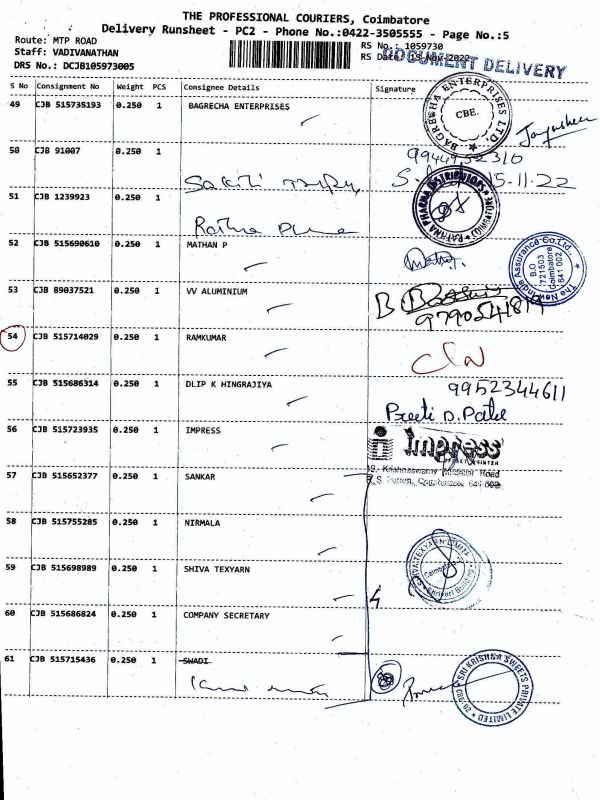 THE PROFESSIONAL COURIERS, Coimbatore
Delivery Runsheet - PC2 - Phone No.:0422-3505555 - Page No.:5
Route: MTP ROAD
Staff: VADIVANATHAN
DRS No.: DCJB105973005
RS No.: 1059730
RS Date: 15-Nov-2022
DOCUMENT DELIVERY
S No Consignment No Weight PCS Consignee Details Signature
49 CJB 515735193 0.250 1 BAGRECHA ENTERPRISES
BAGRECHA ENTERPRISES LTD.
CBE.
50 CJB 91007 0.250 1
9944952310
15-11-22
51 CJB 1239923 0.250 1
RATHNA PHARMA DISTRIBUTORS
52 CJB 515690610 0.250 1 MATHAN P
The New India Assurance Co.Ltd.
B.O
721503
Coimbatore
641 002
53 CJB 89037521 0.250 1 VV ALUMINIUM
54 CJB 515714029 0.250 1 RAMKUMAR
55 CJB 515686314 0.250 1 DLIP K HINGRAJIYA
9952344611
Preeti D. Patel
56 CJB 515723935 0.250 1 IMPRESS
Impress
57 CJB 515652377 0.250 1 SANKAR
58 CJB 515755285 0.250 1 NIRMALA
59 CJB 515698989 0.250 1 SHIVA TEXYARN
60 CJB 515686824 0.250 1 COMPANY SECRETARY
61 CJB 515715436 0.250 1 SWADI
SRI KRISHNA SWEETS PRIVATE LIMITED